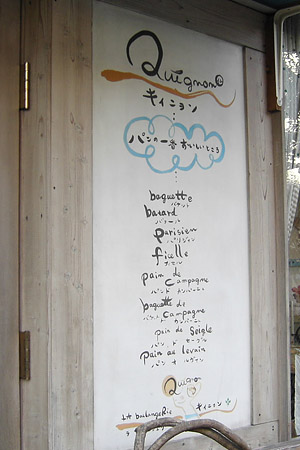 Quignon
キィニヨン
パンの一番おいしいところ
baguette
バゲット
batard
バタール
parisien
パリジャン
ficelle
フィセル
pain de
campagne
パン ド カンパーニュ
baguette de
campagne
pain de seigle
パン ド セーグル
pain au levain
パン オ ルヴァン
Quigno
キィニヨン